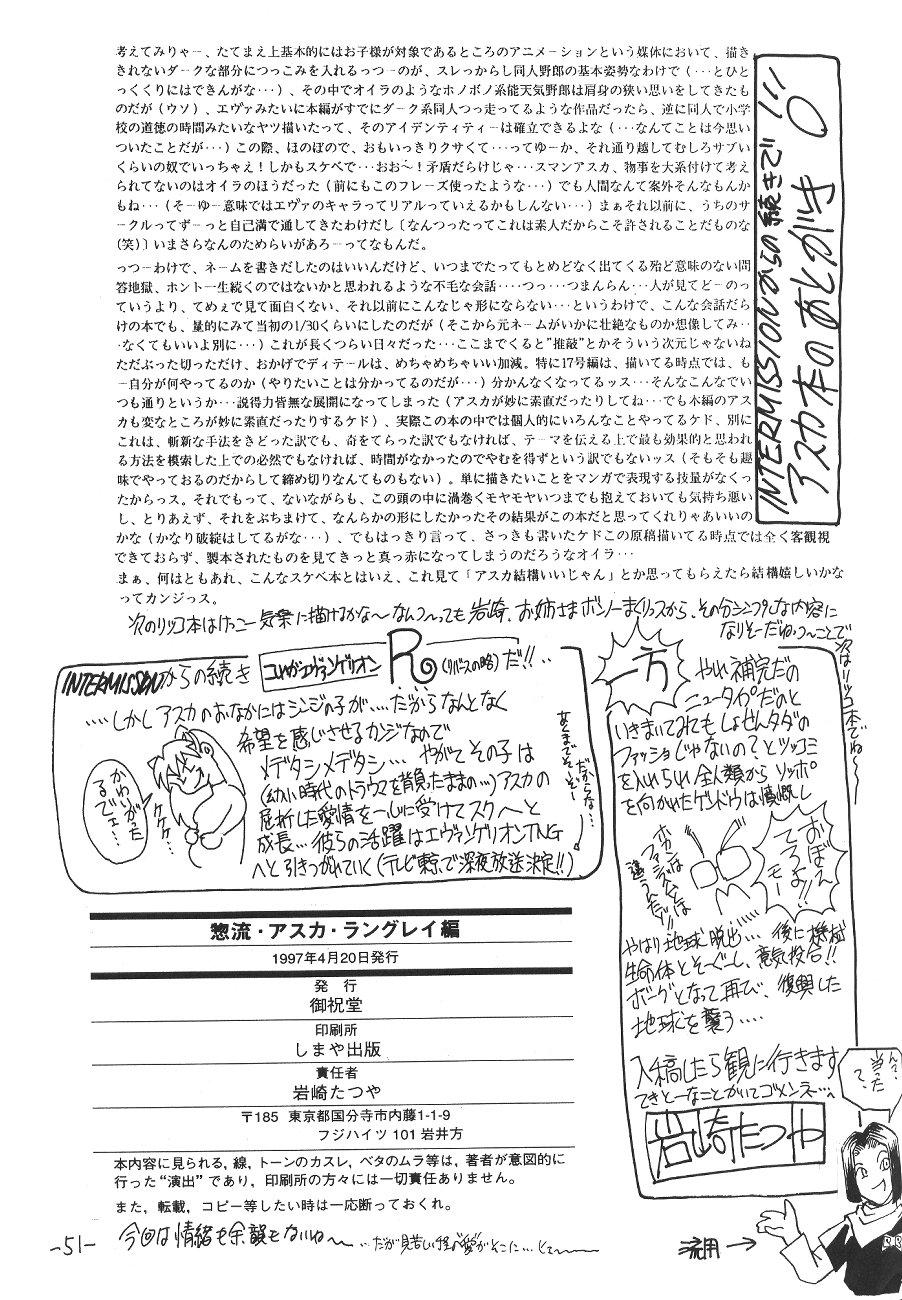 INTERMISSIONからの続きで!!
アスカ本のあとがき
考えてみりゃー、たてまえ上基本的にはお子様が対象であるところのアニメーションという媒体において、描き
きれないダークな部分につっこみを入れるっつーのが、スレっからし同人野郎の基本姿勢なわけで(･･･とひと
っくくりにはできんがな･･･)、その中でオイラのようなホノボノ系能天気野郎は肩身の狭い思いをしてきたも
のだが(ウソ)、エヴァみたいに本編がすでにダーク系同人つっ走ってるような作品だったら、逆に同人で小学
校の道徳の時間みたいなヤツ描いたって、そのアイデンティティーは確立できるよな(･･･なんてことは今思い
ついたことだが･･･)この際、ほのぼので、おもいっきりクサくて･･･ってゆーか、それ通り越してむしろサブい
くらいの奴でいっちゃえ!しかもスケベで･･･おお〜!矛盾だらけじゃ･･･スマンアスカ、物事を大系付けて考え
られてないのはオイラのほうだった(前にもこのフレーズ使ったような･･･)でも人間なんて案外そんなもんか
もね･･･(そーゆー意味ではエヴァのキャラってリアルっていえるかもしんない･･･)まぁそれ以前に、うちのサ
ークルってずーっと自己満で通してきたわけだし〔なんつったってこれは素人だからこそ許されることだものな
(笑)〕いまさらなんのためらいがあろーってなもんだ。
っつーわけで、ネームを書きだしたのはいいんだけど、いつまでたってもとめどなく出てくる殆ど意味のない問
答地獄、ホント一生続くのではないかと思われるような不毛な会話････つっ･･･つまんらん･･･人が見てどーのっ
ていうより、てめぇで見て面白くない、それ以前にこんなじゃ形にならない･･･というわけで、こんな会話だら
けの本でも、量的にみて当初の1/30くらいにしたのだが(そこから元ネームがいかに壮絶なものか想像してみ･･
･なくてもいいよ別に･･･)これが長くつらい日々だった･･･ここまでくると"推敲"とかそういう次元じゃないね
ただぶった切っただけ、おかげでディテールは、めちゃめちゃいい加減。特に17号編は、描いてる時点では、も
ー自分が何やってるのか(やりたいことは分かってるのだが･･･)分かんなくなってるッス･･･そんなこんなでい
つも通りというか･･･説得力皆無な展開になってしまった(アスカが妙に素直だったりしてね･･･でも本編のアス
カも変なところが妙に素直だったりするケド)、実際この本の中では個人的にいろんなことやってるケド、別に
これは、斬新な手法をきどった訳でも、奇をてらった訳でもなければ、テーマを伝える上で最も効果的と思われ
る方法を模索した上での必然でもなければ、時間がなかったのでやむを得ずという訳でもないッス(そもそも趣
味でやっておるのだからして締め切りなんてものもない)。単に描きたいことをマンガで表現する技量がなくっ
たからっス。それでもって、ないながらも、この頭の中に渦巻くモヤモヤいつまでも抱えておいても気持ち悪い
し、とりあえず、それをぶちまけて、なんらかの形にしたかったその結果がこの本だと思ってくれりゃあいいの
かな(かなり破綻はしてるがな･･･)、でもはっきり言って、さっきも書いたケドこの原稿描いてる時点では全く客観視
できておらず、製本されたものを見てきっと真っ赤になってしまうのだろうなオイラ･･･
まぁ、何はともあれ、こんなスケベ本とはいえ、これ見て「アスカ結構いいじゃん」とか思ってもらえたら結構嬉しいかな
ってカンジっス。
次のリツコ本はけっこー気楽に描けるかな〜なんつっても岩崎、お姉さまボンノーまくりっスから、その分シンプルな内容に
なりそーだね、つーことで
次はリツコ本でね〜
INTERMISSIONからの続き
R(リバースの略)だ!!‥
‥‥しかしアスカのおなかにはシンジの子が‥‥だからなんとなく
希望を感じさせるカンジなので
メデタシメデタシ… やがてその子は
(幼い時代のトラウマを背負ったままの…)アスカの
屈折した愛情を一心に受けてスクスクと
成長… 彼らの活躍はエヴァンゲリオンTNG
へと引きつがれていく(テレビ東京で深夜放送決定!!)
かわいがったるでェ…
ケケケ…
一方
やれ補完だの
ニュータイプだのと
いきまいてみてもしょせんタダの
ファッショじゃないの?とツッコミ
を入れられ全人類からソッポ
を向かれたゲンドウは憤慨し
おぼえてろよ!!モー
ホカンファシズムとは違うんだ!!
やはり地球脱出… 後に機械
生命体とそーぐーし、意気投合!!
ボーグとなって再び、復興した
地球を襲う‥‥
入稿したら観に行きます
てきとーなことかいてゴメンネ…〜
岩崎たつや
惣流・アスカ・ラングレイ編
1997年4月20日発行
発 行
御祝堂
印刷所
しまや出版
責任者
岩崎たつや
〒185 東京都国分寺市内藤1-1-9
フジハイツ 101 岩井方
本内容に見られる, 線, トーンのカスレ, ベタのムラ等は, 著者が意図的に
行った"演出"であり, 印刷所の方々には一切責任ありません。
また, 転載, コピー等したい時は一応断っておくれ。
-51-
今回は情緒も余韻もないね〜
流用→